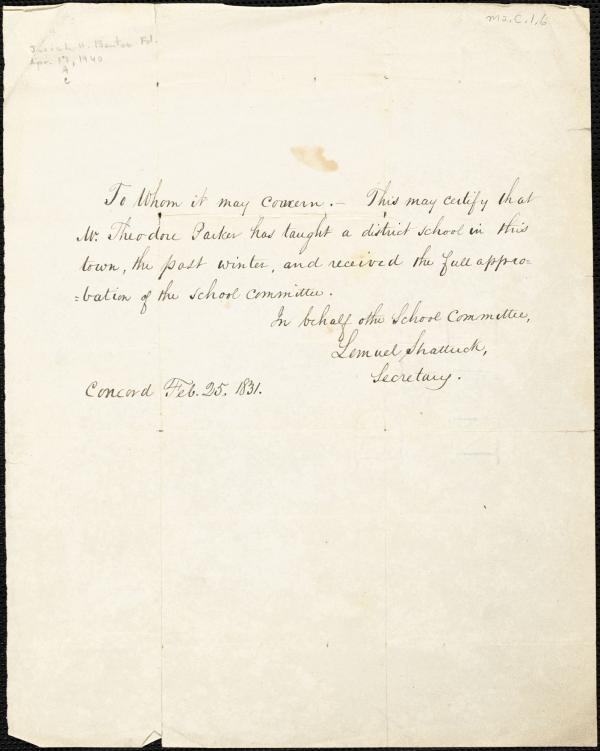 Ms.C.1.6
Josiah H. Benton Fd.
Apr. 17, 1940
To Whom it may concern. – This may certify that
Mr. Theodore Parker has taught a district school in this
town, the past winter, and received the full appro=
=bation of the school committee.
In behalf othe School Committee,
Lemuel Shattuck,
Secretary.
Concord Feb. 25. 1831.